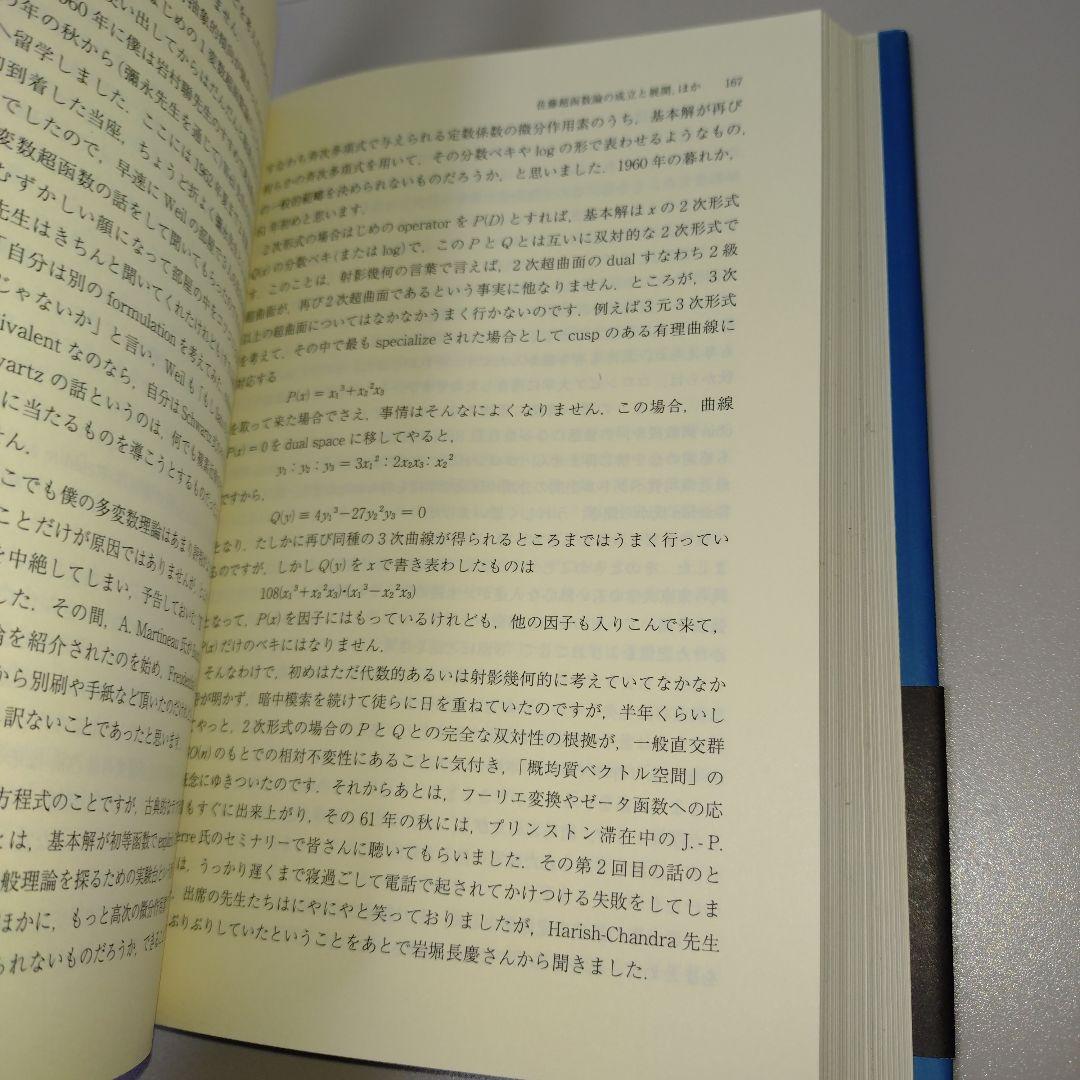 年の秋から(彌永先生を通じて
へ留学しました．ここには1962年
的到着した当座，ちょうど折よく
でしたので，早速に Weil の部屋で
変数超函数の話をして聞いてもらった
むずかしい顔になって部屋の中を
先生はきちんと聞いてくれたけれども
「自分は別の formulation を考えてみた
じゃないか」と言い，Weil も「もし
ivalent なのなら，自分は Schwartz
wartz の話というのは，何でも複素
に当たるものを導こうとするもの
せん．
こでも僕の多変数理論はあまり
ことだけが原因ではありませんが
を中絶してしまい，予告しておいた
した．その間，A. Martineau 氏が
論を紹介されたのを始め，
から別刷や手紙など頂いたのだ
し訳ないことであったと思います．
方程式のことですが，古典的な
とは，基本解が初等函数で
般理論を探るための実験台
ほかに，もっと高次の微分作用素
られないものだろうか，
佐藤超函数論の成立と展開，ほか 167
すなわち斉次多項式で与えられる定数係数の微分作用素のうち，基本解が再び
何らかの斉次多項式を用いて，その分数ベキや log の形で表わせるようなもの，
の一般的範疇を決められないものだろうか，と思いました．1960年の暮れか，
61年初めと思います．
2次形式の場合はじめの operator を P(D) とすれば，基本解は x の2次形式
Q(x) の分数ベキ(または log)で，この P と Q とは互いに双対的な2次形式で
す．このことは，射影幾何の言葉で言えば，2次超曲面の dual すなわち2級
超曲面が，再び2次超曲面であるという事実に他なりません．ところが，3次
以上の超曲面についてはなかなかうまく行かないのです．例えば3元3次形式
を考えて，その中で最も specialize された場合として cusp のある有理曲線に
対応する
P(x) = x₁³+x₂²x₃
を取って来た場合でさえ，事情はそんなによくなりません．この場合，曲線
P(x)=0 を dual space に移してやると，
y₁ : y₂ : y₃ = 3x₁² : 2x₂x₃ : x₂²
ですから，
Q(y) ≡ 4y₁³−27y₂²y₃ = 0
となり，たしかに再び同種の3次曲線が得られるところまではうまく行ってい
るのですが，しかし Q(y) を x で書き表わしたものは
108(x₁³+x₂²x₃)·(x₁³−x₂²x₃)
となって，P(x) を因子にはもっているけれども，他の因子も入りこんで来て，
P(x) だけのベキにはなりません．
そんなわけで，初めはただ代数的あるいは射影幾何的に考えていてなかなか
が明かず，暗中模索を続けて徒らに日を重ねていたのですが，半年くらいし
やっと，2次形式の場合の P と Q との完全な双対性の根拠が，一般直交群
GO(n) のもとでの相対不変性にあることに気付き，「概均質ベクトル空間」の
概念にゆきついたのです．それからあとは，フーリエ変換やゼータ函数への応
もすぐに出来上がり，その61年の秋には，プリンストン滞在中の J.-P.
erre 氏のセミナリーで皆さんに聴いてもらいました．その第2回目の話のと
は，うっかり遅くまで寝過ごして電話で起されてかけつける失敗をしてしま
出席の先生たちはにやにやと笑っておりましたが，Harish-Chandra 先生
ぷりぷりしていたということをあとで岩堀長慶さんから聞きました．